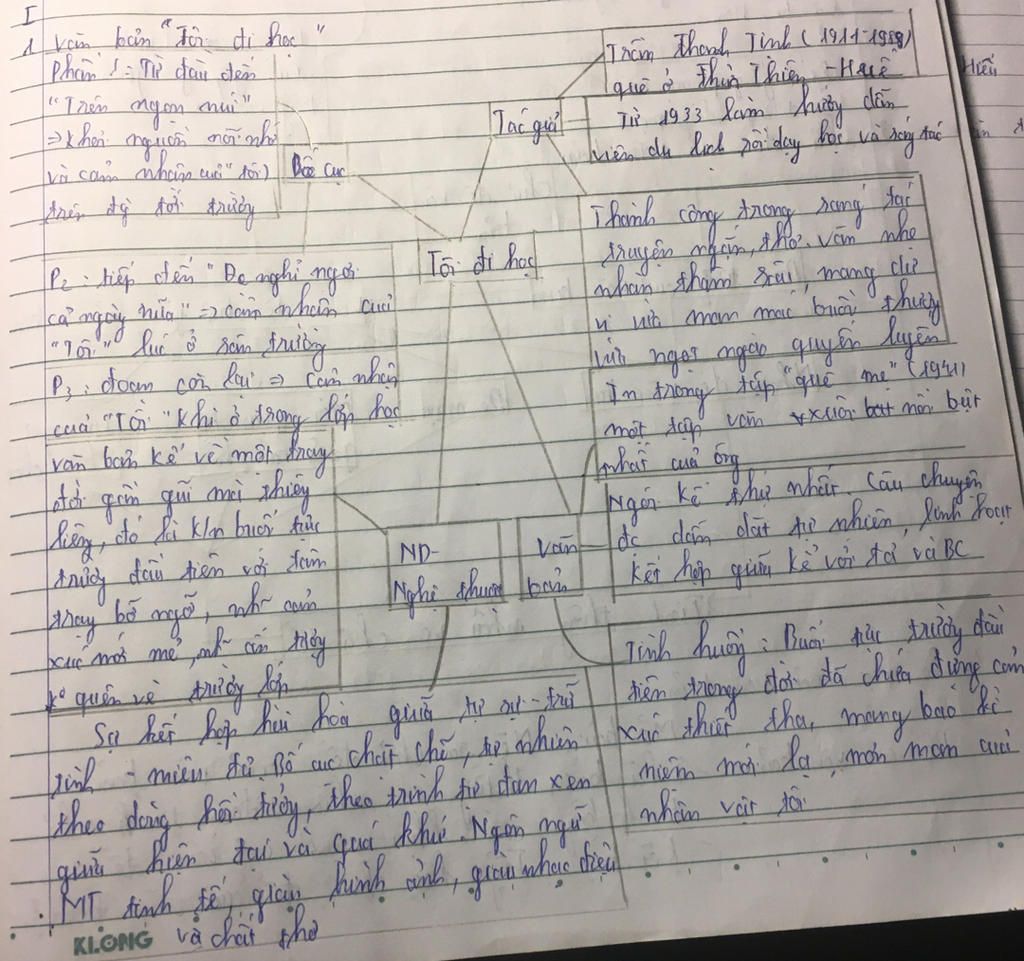 I
1 Văn bản "Tôi đi học"
Phần 1: Từ đầu đến
"Trên ngọn núi"
=> Khơi nguồn nỗi nhớ
và cảm nhận của "tôi)
trên
tới trường
Bố cục
P2: tiếp đến "Đc nghỉ ngơi
cả ngày nữa" => cảm nhận của
"Tôi" lúc ở sân trường
P3: đoạn còn lại => Cảm nhận
của "Tôi" khi ở trong lớp học
Tôi đi học
Tác giả
Trần Thanh Tịnh (1911-1988)
quê ở Thừa Thiên - Huế
Từ 1933 làm hướng dẫn
viên du lịch rồi dạy học và sáng tác
Thành công trong sáng tác
truyện ngắn, thơ. văn nhẹ
nhàn thấm sâu, mang dư
vị vừa man mác buồn thương
vừa ngọt ngào quyến luyến
In trong tập "quê mẹ" (1941)
một tập văn xuôi nổi bật
nhất của ông
Văn
bản
Ngôi kể thứ nhất. Câu chuyện
đc dẫn dắt tự nhiên, linh hoạt
kết hợp giữa kể với tả và BC
Tình huống: Buổi tựu trường đầu
tiên trong đời đã chứa đựng cảm
xúc thiết tha, mang bao kỉ
niệm mới lạ, mơn man của
nhân vật tôi
ND-
Nghệ thuật
văn bản kể về một
đời gần gũi mà thiêng
liêng, đó là k/n buổi tựu
trường đầu tiên với tâm
bỡ ngỡ, nh~ cảm
xúc mới mẻ, nh~ ấn
k° quên về trường lớp
Sự kết hợp hài hoà giữa tự sự - trữ
tình - miêu tả. Bố cục chặt chẽ, tự nhiên
theo dòng hồi tưởng, theo trình tự đan xen
giữa hiện tại và quá khứ. Ngôn ngữ
MT tinh tế, giàu hình ảnh, giàu nhạc điệu
và chất thơ
KLONG
Hiếu